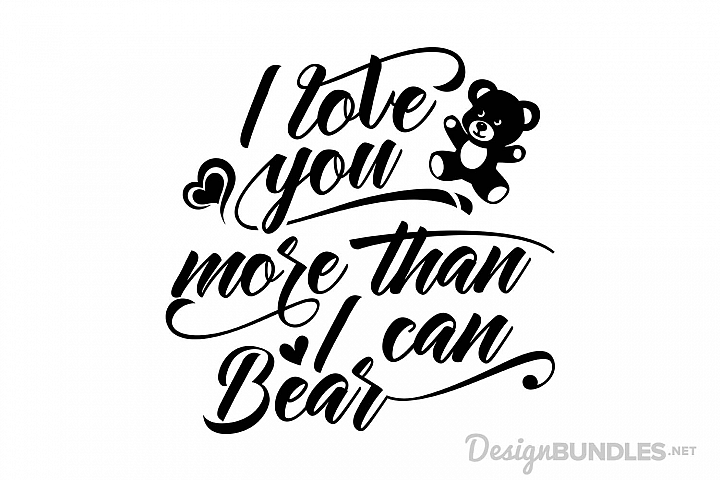 I love
you
more than
I can
Bear
DesignBUNDLES.NET